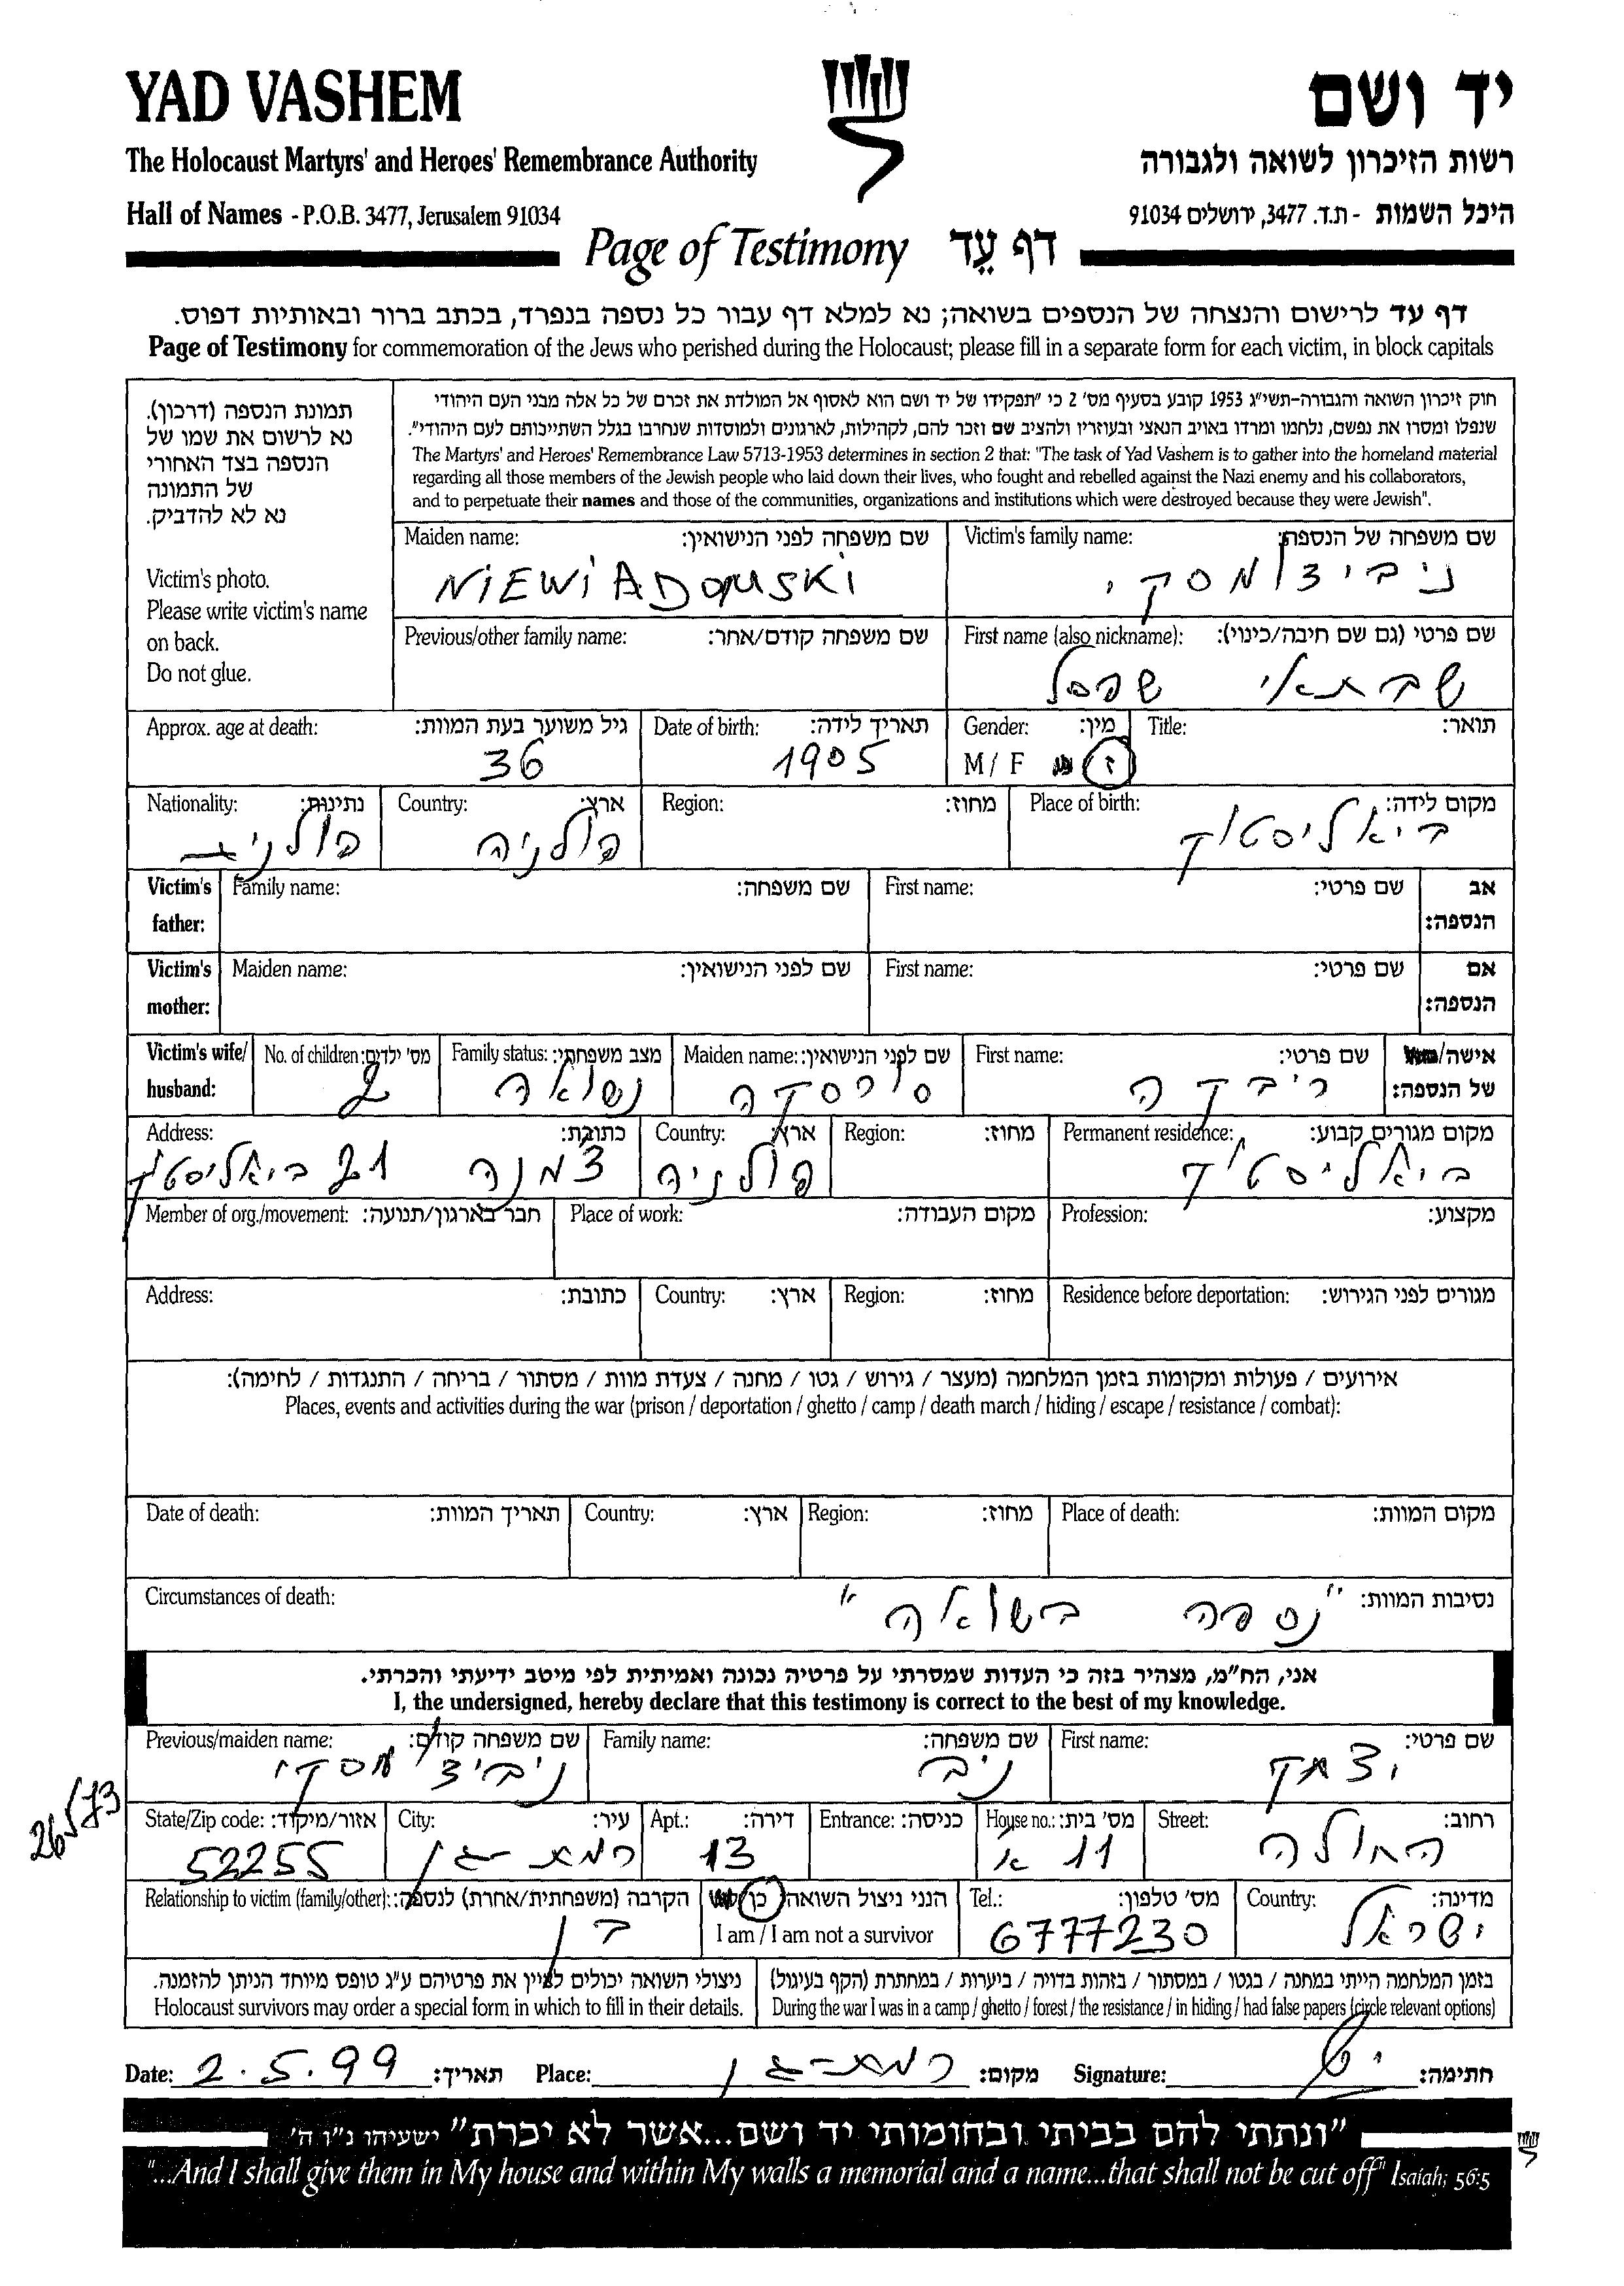 YAD VASHEM
יד ושם
The Holocaust Martyrs' and Heroes' Remembrance Authority
רשות הזיכרון לשואה ולגבורה
Hall of Names - P.O.B. 3477, Jerusalem 91034
היכל השמות - ת.ד. 3477, ירושלים 91034
Page of Testimony דף עֵד
דף עד לרישום והנצחה של הנספים בשואה; נא למלא דף עבור כל נספה בנפרד, בכתב ברור ובאותיות דפוס.
Page of Testimony for commemoration of the Jews who perished during the Holocaust; please fill in a separate form for each victim, in block capitals
תמונת הנספה (דרכון).
נא לרשום את שמו של
הנספה בצד האחורי
של התמונה
נא לא להדביק.
Victim's photo.
Please write victim's name
on back.
Do not glue.
חוק זיכרון השואה והגבורה-תשי"ג 1953 קובע בסעיף מס' 2 כי "תפקידו של יד ושם הוא לאסוף אל המולדת את זכרם של כל אלה מבני העם היהודי
שנפלו ומסרו את נפשם, נלחמו ומרדו באויב הנאצי ובעוזריו ולהציב שם וזכר להם, לקהילות, לארגונים ולמוסדות שנחרבו בגלל השתייכותם לעם היהודי".
The Martyrs' and Heroes' Remembrance Law 5713-1953 determines in section 2 that: "The task of Yad Vashem is to gather into the homeland material
regarding all those members of the Jewish people who laid down their lives, who fought and rebelled against the Nazi enemy and his collaborators,
and to perpetuate their names and those of the communities, organizations and institutions which were destroyed because they were Jewish".
Victim's family name: שם משפחה של הנספה:
ניביצומסקי
Maiden name: שם משפחה לפני הנישואין:
NIEWIADOMSKI
First name (also nickname): שם פרטי (גם שם חיבה/כינוי):
שבתאי שפסל
Previous/other family name: שם משפחה קודם/אחר:
Title: תואר:
Gender: מין:
M / F ז
Date of birth: תאריך לידה:
1905
Approx. age at death: גיל משוער בעת המוות:
36
Place of birth: מקום לידה:
ביאליסטוק
Region: מחוז:
Country: ארץ:
פולניה
Nationality: נתינות:
פולנית
Victim's father: Family name: שם משפחה: First name: שם פרטי: אב הנספה:
Victim's mother: Maiden name: שם לפני הנישואין: First name: שם פרטי: אם הנספה:
Victim's wife/ husband: אישה/ של הנספה:
First name: שם פרטי:
ריבקה
Maiden name: שם לפני הנישואין:
סורסקה
Family status: מצב משפחתי:
נשואה
No. of children: מס' ילדים:
2
Permanent residence: מקום מגורים קבוע:
ביאליסטוק
Region: מחוז:
Country: ארץ:
פולניה
Address: כתובת:
צמנה 21 ביאליסטוק
Member of org./movement: חבר בארגון/תנועה: Place of work: מקום העבודה: Profession: מקצוע:
Address: כתובת: Country: ארץ: Region: מחוז: Residence before deportation: מגורים לפני הגירוש:
אירועים / פעולות ומקומות בזמן המלחמה (מעצר / גירוש / גטו / מחנה / צעדת מוות / מסתור / בריחה / התנגדות / לחימה):
Places, events and activities during the war (prison / deportation / ghetto / camp / death march / hiding / escape / resistance / combat):
Date of death: תאריך המוות: Country: ארץ: Region: מחוז: Place of death: מקום המוות:
Circumstances of death: נסיבות המוות:
"נספה בשואה"
אני, הח"מ, מצהיר בזה כי העדות שמסרתי על פרטיה נכונה ואמיתית לפי מיטב ידיעתי והכרתי.
I, the undersigned, hereby declare that this testimony is correct to the best of my knowledge.
First name: שם פרטי:
יצחק
Family name: שם משפחה:
ניב
Previous/maiden name: שם משפחה קודם:
ניביצומסקי
26573
Street: רחוב:
החולה
House no.: מס' בית:
11 א
Entrance: כניסה:
Apt.: דירה:
13
City: עיר:
רמת-גן
State/Zip code: אזור/מיקוד:
52255
Country: מדינה:
ישראל
Tel.: מס' טלפון:
6777230
הנני ניצול השואה: כן
I am / I am not a survivor
Relationship to victim (family/other): הקרבה (משפחתית/אחרת) לנספה:
בן
בזמן המלחמה הייתי במחנה / בגטו / במסתור / בזהות בדויה / ביערות / במחתרת (הקף בעיגול)
During the war I was in a camp / ghetto / forest / the resistance / in hiding / had false papers (circle relevant options)
ניצולי השואה יכולים לציין את פרטיהם ע"ג טופס מיוחד הניתן להזמנה.
Holocaust survivors may order a special form in which to fill in their details.
Date: 2.5.99 תאריך: Place: רמת-גן מקום: Signature: חתימה:
"ונתתי להם בביתי ובחומותי יד ושם...אשר לא יכרת" ישעיהו נ"ו ה'
"...And I shall give them in My house and within My walls a memorial and a name...that shall not be cut off" Isaiah; 56:5